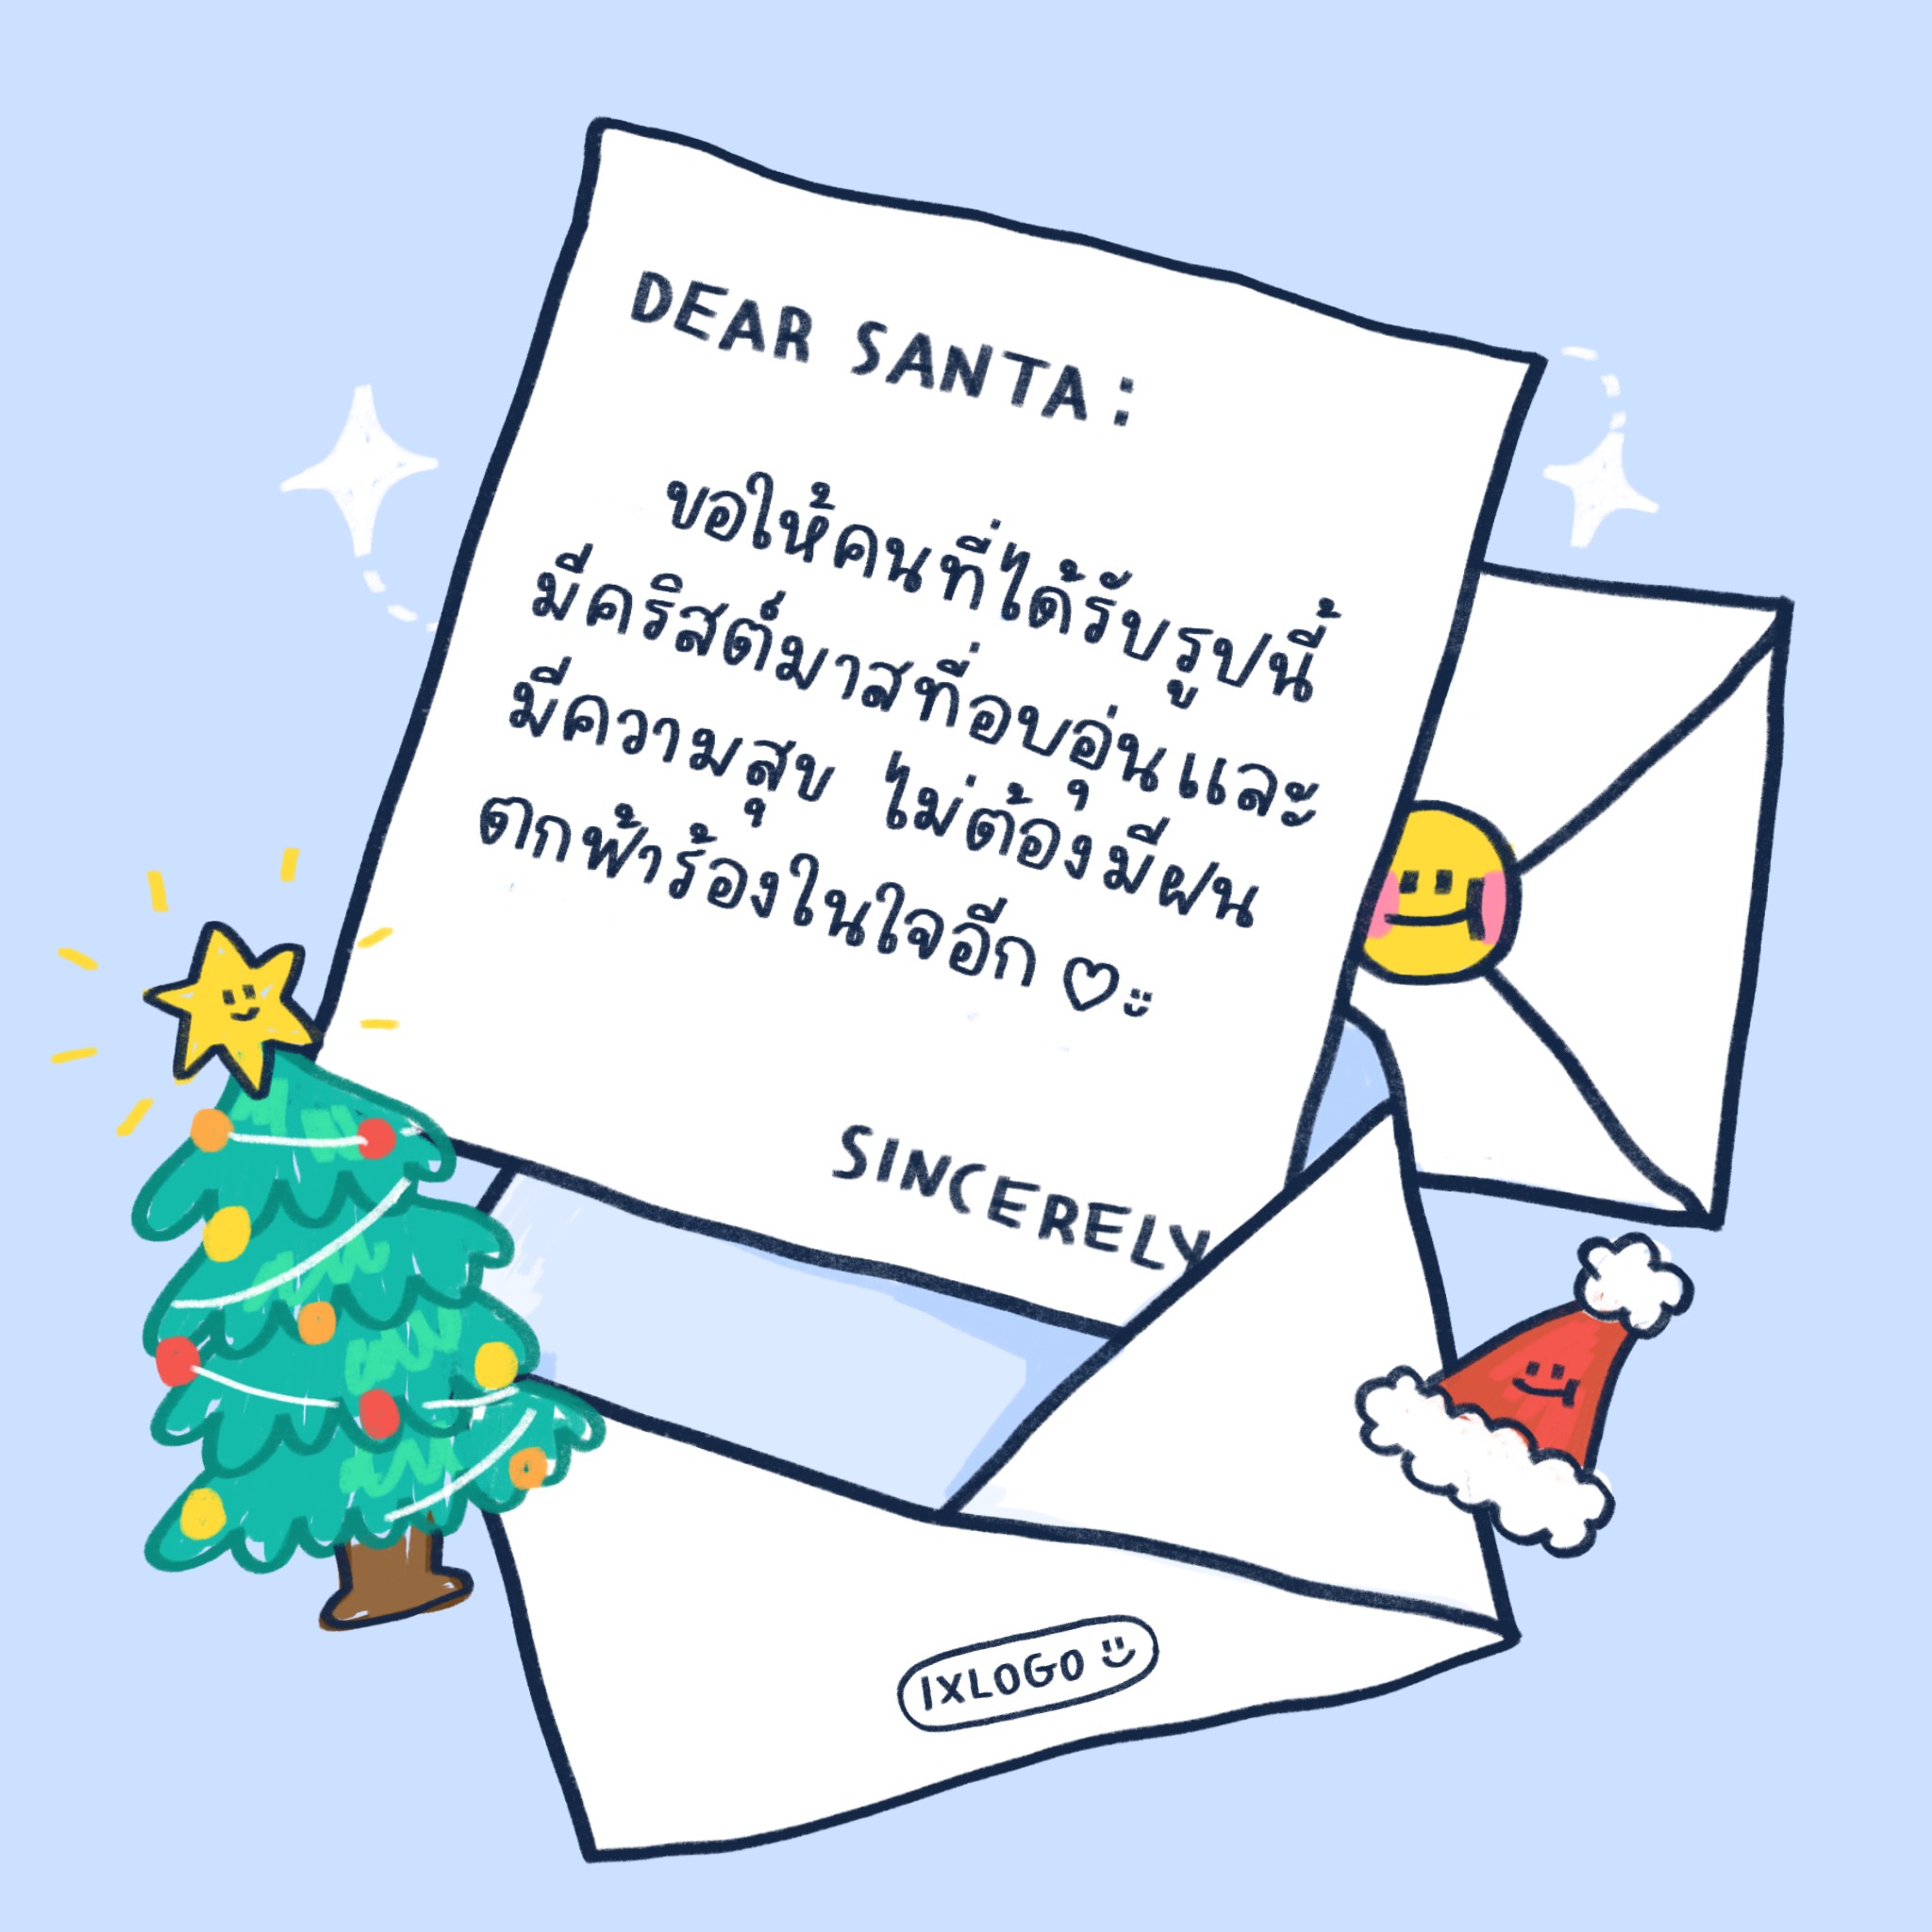 DEAR SANTA :
ขอให้คนที่ได้รับรูปนี้
มีคริสต์มาสที่อบอุ่นและ
มีความสุข ไม่ต้องมีฝน
ตกฟ้าร้องในใจอีก ♡
SINCERELY
IXLOGO